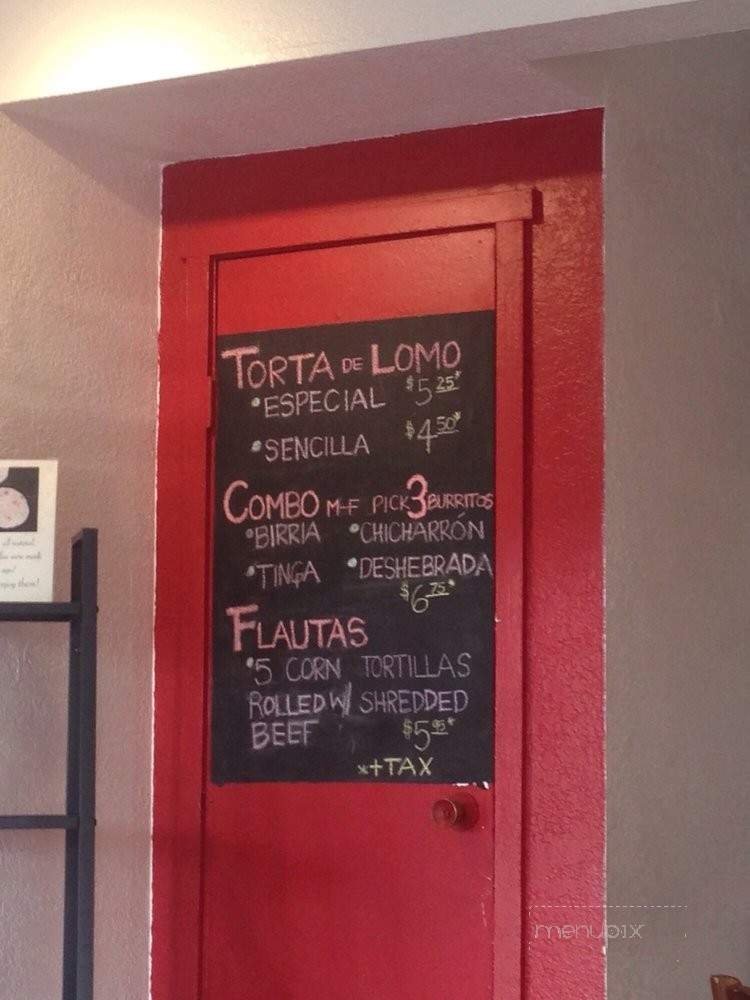 TORTA DE LOMO
•ESPECIAL $5 25*
•SENCILLA $4 50*
COMBO M-F PICK 3 BURRITOS
•BIRRIA •CHICHARRÓN
•TINGA •DESHEBRADA
$6 75*
FLAUTAS
•5 CORN TORTILLAS
ROLLED W/ SHREDDED
BEEF $5 95*
*+TAX
all natural.
enjoy them!
menupix